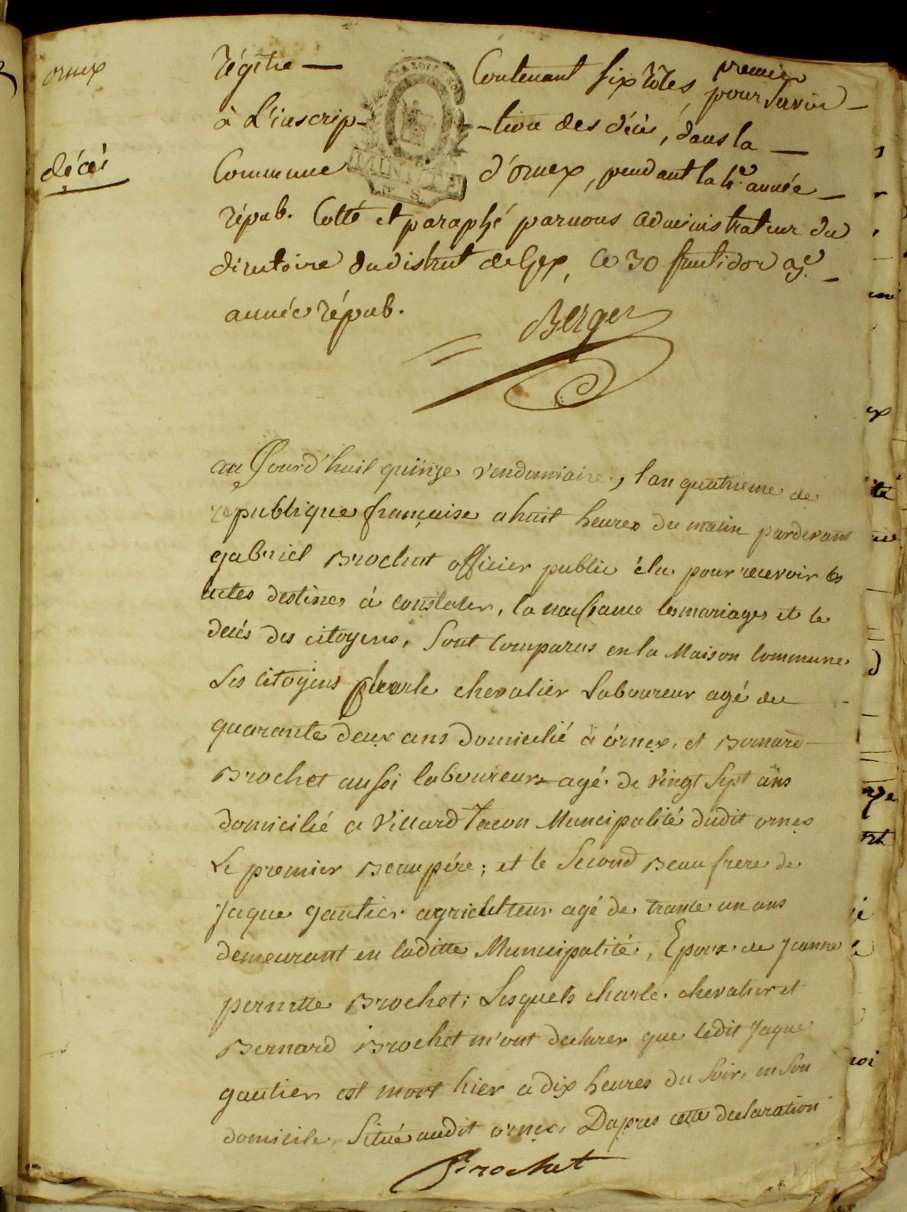 ornex
décés
régitre — Contenant six rôles, premier
pour servir —
à L'inscrip- -tion des décès, dans la —
Commune d'ornex, pendant la 4e année —
répub. Cotté et paraphé par nous administrateur du
directoire du district de Gex, Ce 30 fructidor 3e —
année répub.
Berger
MINUTE
au Jourd'huil quinze vendemiaire, l'an quatrieme de
republique française a huit heures du matin pardevant
gabriel Brochot officier public élu pour recevoir les
actes destines à constater, la naissance les mariages et le
decés des citoyens, Sont Comparus en la Maison Commune
Les Citoyens Charle chevalier Laboureur agé de
quarante deux ans domicilié à órnex, et Bernard
Brochet aussi laboureur agé de vingt Sept ans
domicilié a Villard Tacon Municipalité dudit ornex
Le premier Beaupére; et le Second Beaufrere de
Jaque gautier agriculteur agé de trante un ans
demeurant en laditte Municipalité, Epoux de Jeanne
pernette Brochet, Lesquels charle chevalier et
Bernard Brochet m'ont declarer que ledit Jaque
gautier est mort hier a dix heures du Soir, en Son
domicile, Situé audit ornex, Dapres cette declaration
Brochet